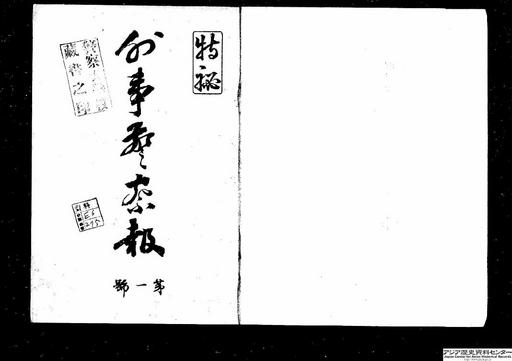 特秘
外事警察報
第一號
警察
藏書之印
アジア歴史資料センター
Japan Center for Asian Historical Records